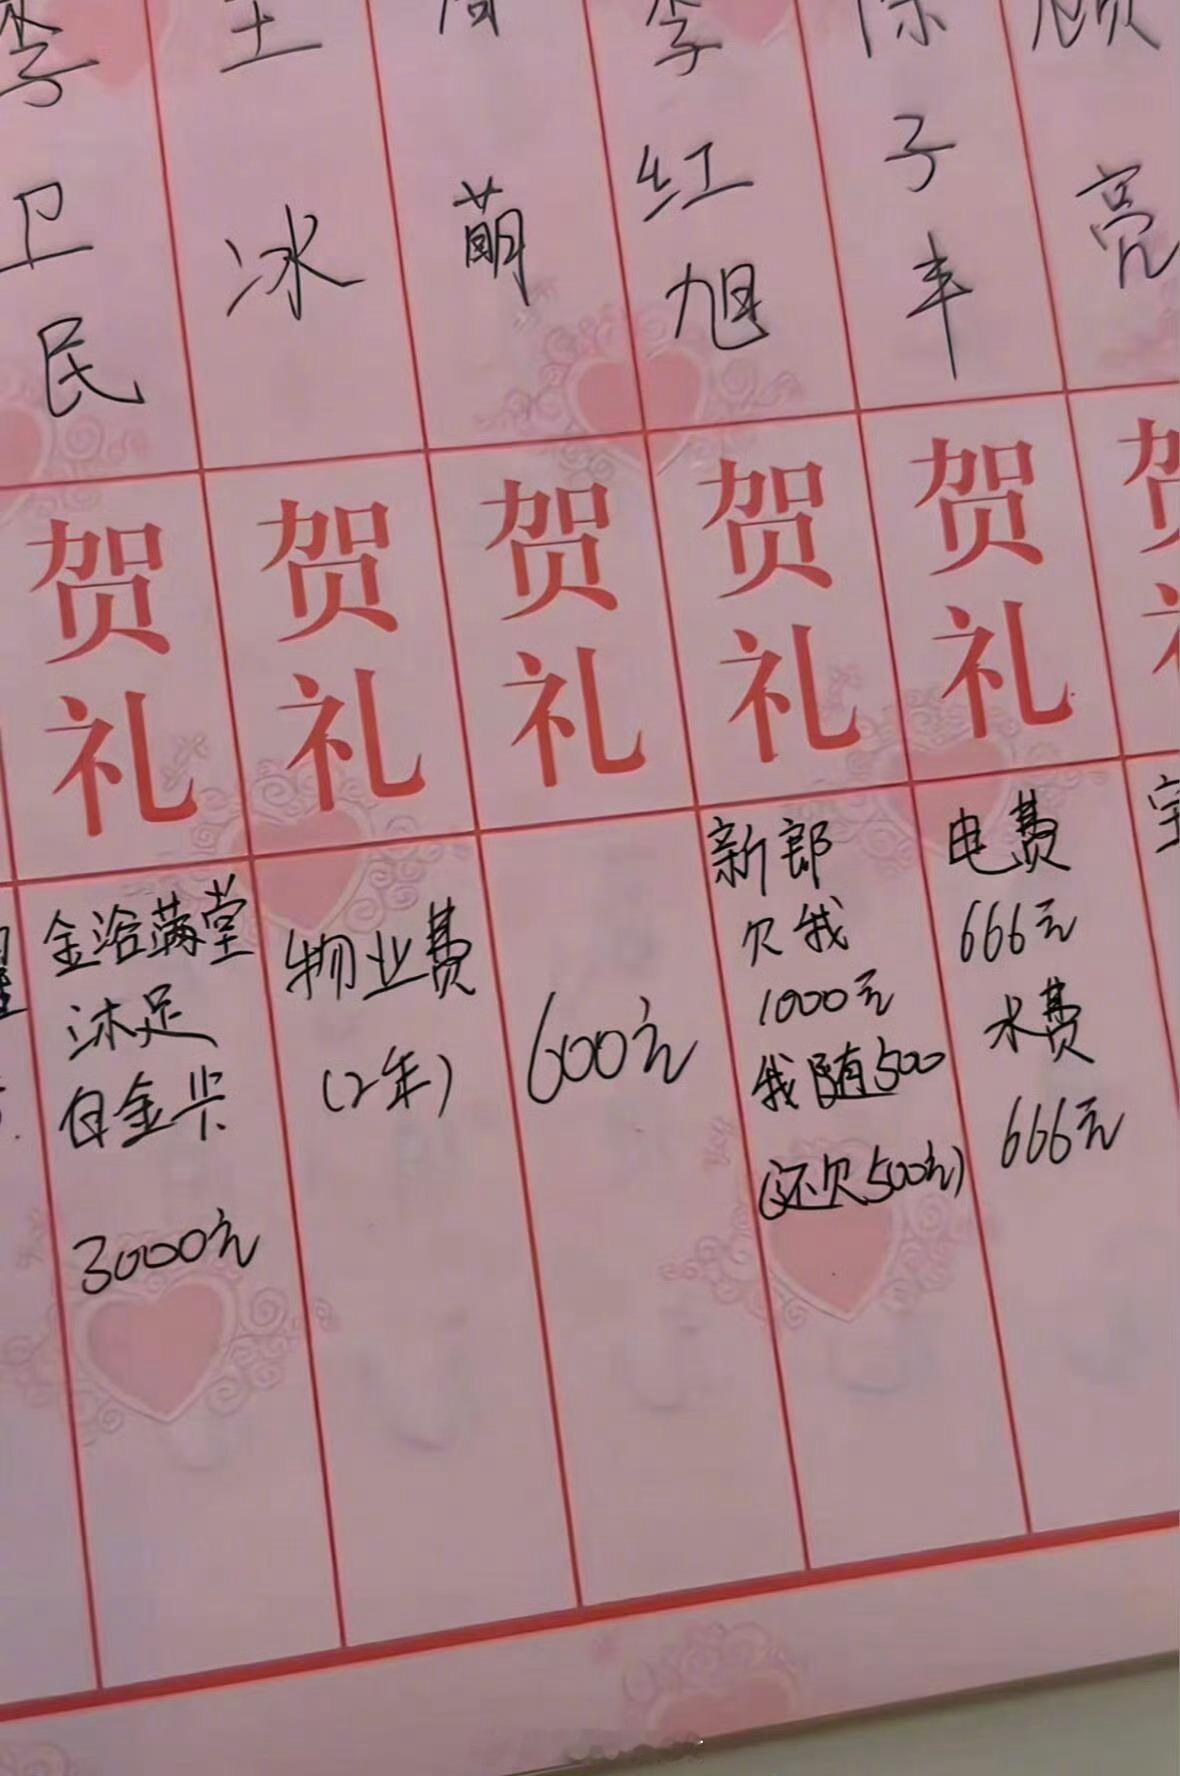 李卫民
贺礼
金浴满堂
沐足
白金卡
3000元
王冰
贺礼
物业费
(2年)
萌
贺礼
600元
李红旭
贺礼
新郎
欠我
1000元
我随500
(还欠500元)
陈子丰
贺礼
电费
666元
水费
666元
顾亮
贺礼